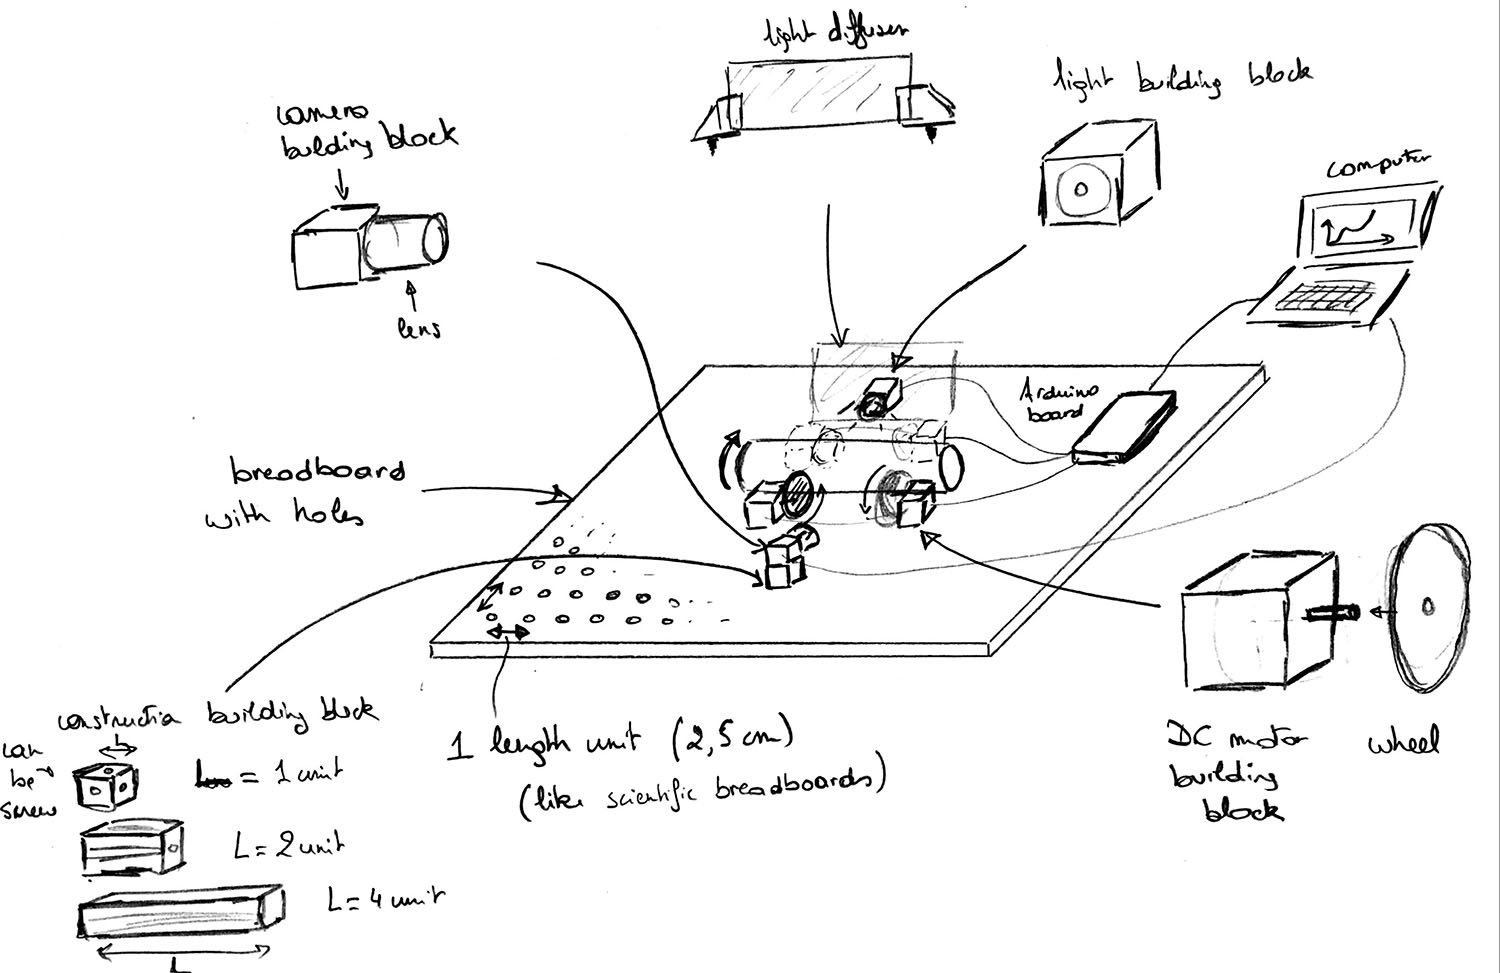 light diffuser
light building block
camera
building block
lens
computer
Arduino
board
breadboard
with holes
construction building block
can
be
screw
L
= 1 unit
L = 2 unit
L = 4 unit
L
1 length unit (2,5 cm)
(like scientific breadboards)
DC motor
building
block
wheel